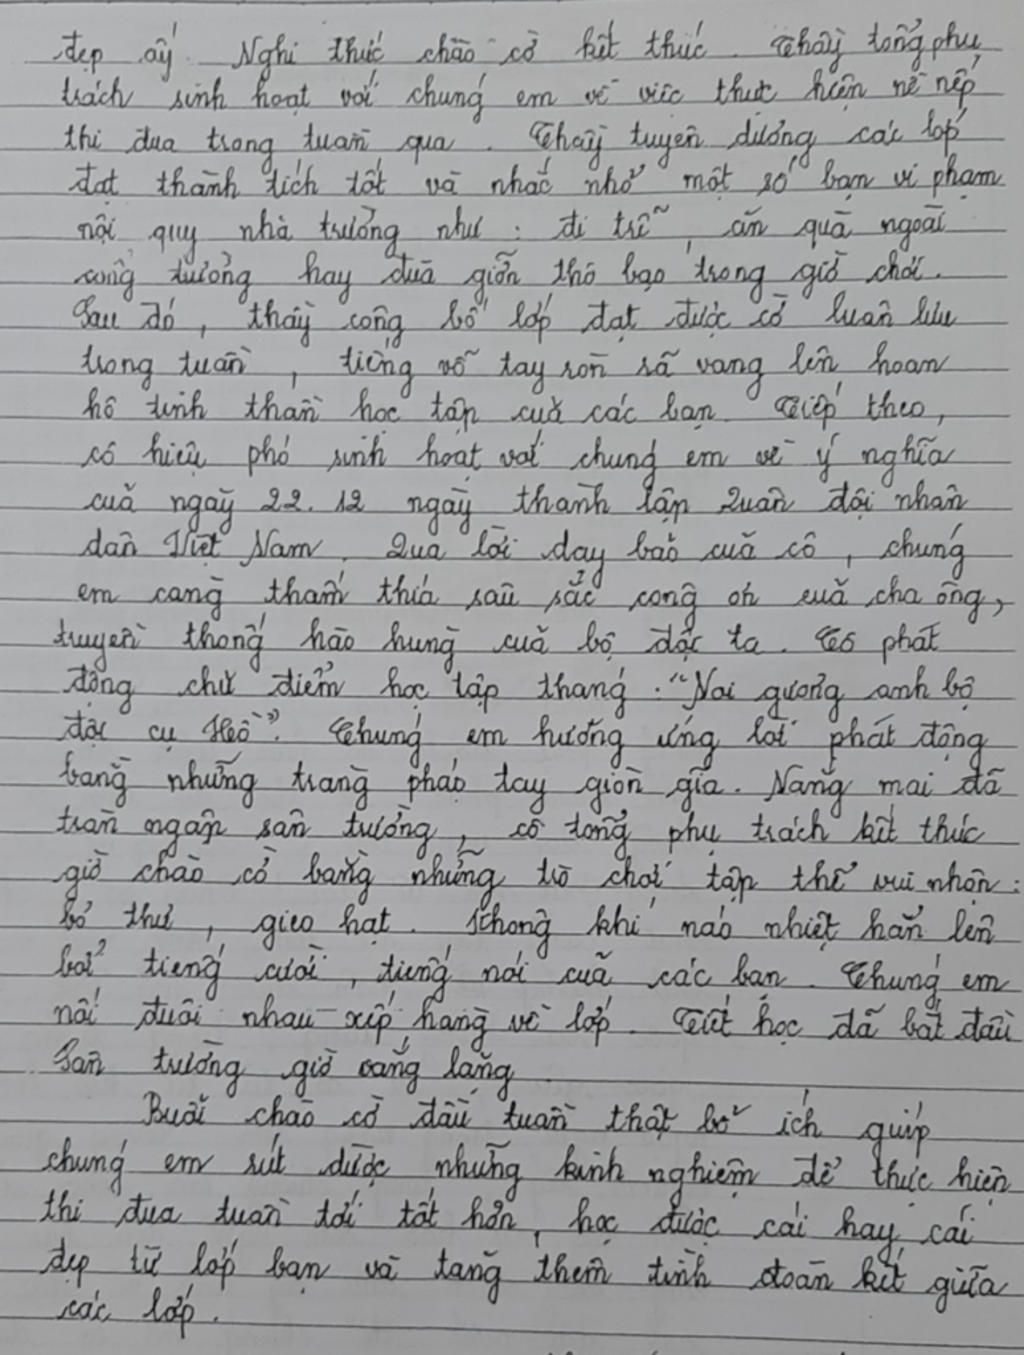 đẹp ấy. Nghi thức chào cờ kết thúc. Thầy tổng phụ
trách sinh hoạt với chúng em về việc thực hiện nề nếp
thi đua trong tuần qua. Thầy tuyên dương các lớp
đạt thành tích tốt và nhắc nhở một số bạn vi phạm
nội quy nhà trường như: đi trễ, ăn quà ngoài
cổng trường hay đùa giỡn thô bạo trong giờ chơi.
Sau đó, thầy công bố lớp đạt được cờ luân lưu
trong tuần, tiếng vỗ tay ròn rã vang lên hoan
hô tinh thần học tập của các bạn. Tiếp theo,
cô hiệu phó sinh hoạt với chúng em về ý nghĩa
của ngày 22.12 ngày thành lập Quân đội nhân
dân Việt Nam. Qua lời dạy bảo của cô, chúng
em càng thấm thía sâu sắc công ơn của cha ông,
truyền thống hào hùng của bộ đội ta. Cô phát
động chủ điểm học tập tháng: "Noi gương anh bộ
đội cụ Hồ". Chúng em hưởng ứng lời phát động
bằng những tràng pháo tay giòn giã. Nắng mai đã
tràn ngập sân trường, cô tổng phụ trách kết thúc
giờ chào cờ bằng những trò chơi tập thể vui nhộn:
bỏ thư, gieo hạt. Không khí náo nhiệt hẳn lên
bởi tiếng cười, tiếng nói của các bạn. Chúng em
nối đuôi nhau xếp hàng về lớp. Tiết học đã bắt đầu
Sân trường giờ vắng lặng.
Buổi chào cờ đầu tuần thật bổ ích giúp
chúng em rút được những kinh nghiệm để thực hiện
thi đua tuần tới tốt hơn, học được cái hay cái
đẹp từ lớp bạn và tăng thêm tình đoàn kết giữa
các lớp.